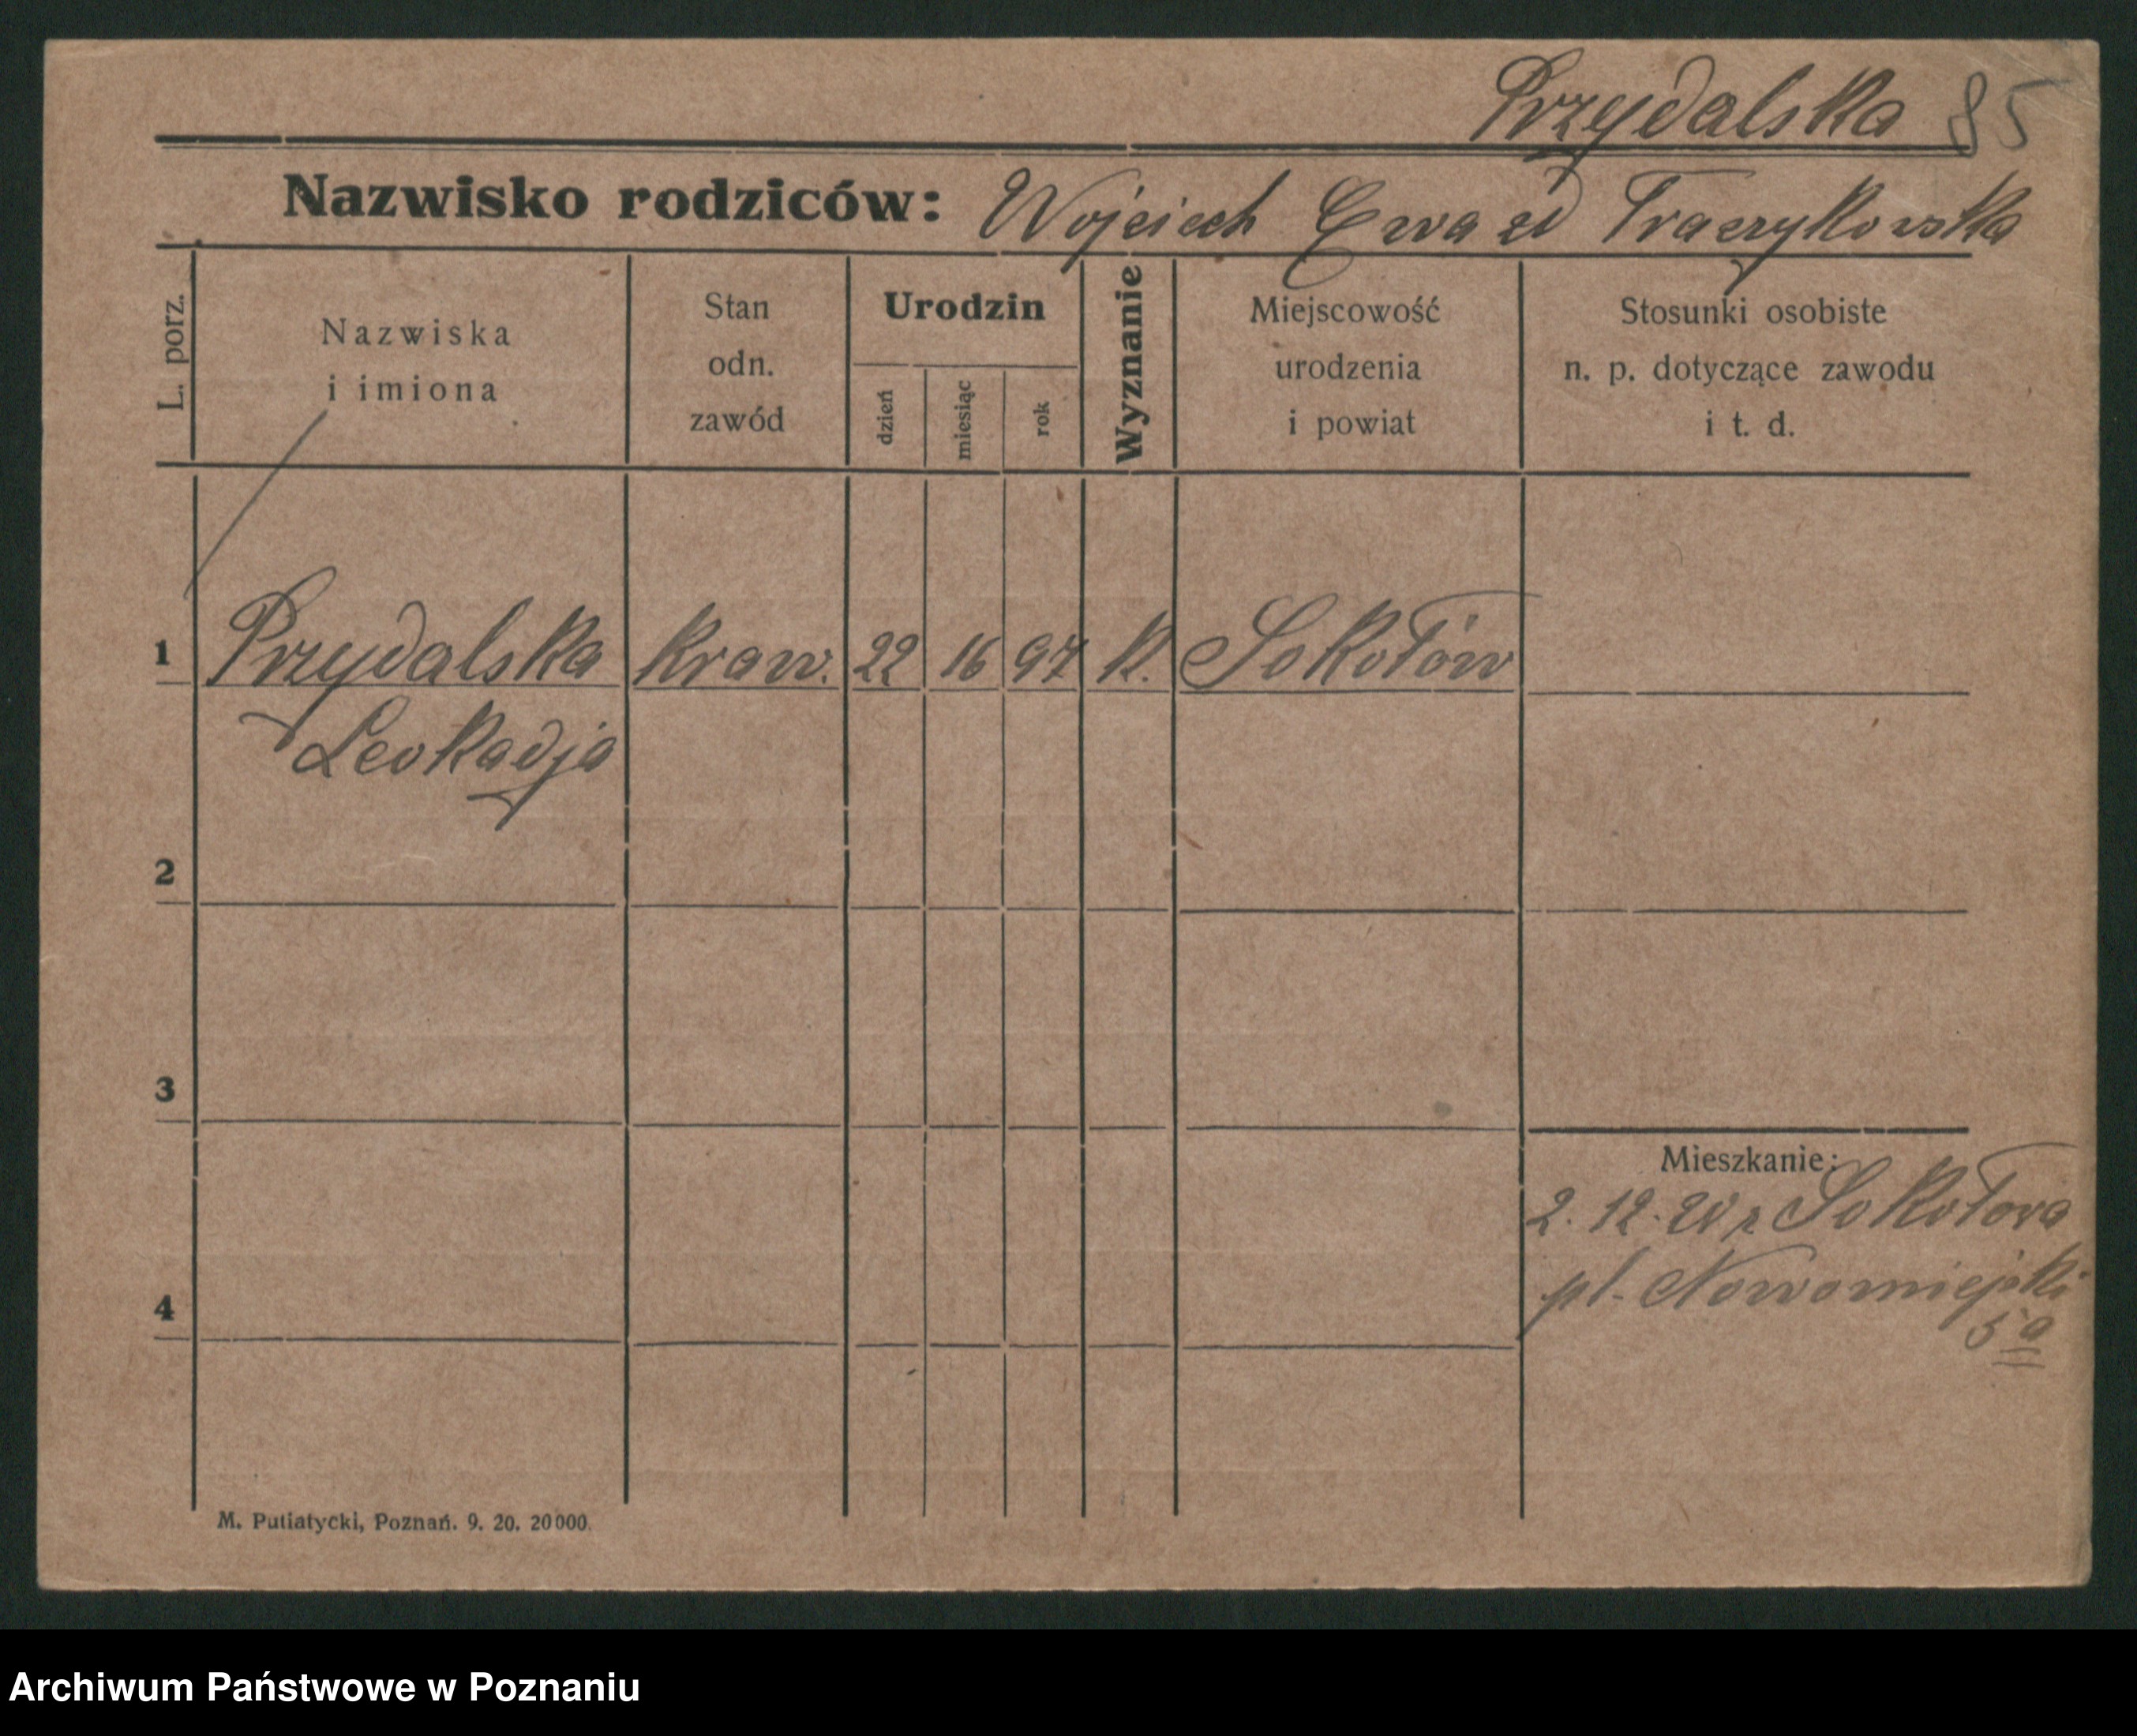 Przydalska 85
Nazwisko rodziców: Wojciech Ewa zd Traczykowska
L. porz.
Nazwiska
i imiona
Stan
odn.
zawód
Urodzin
dzień
miesiąc
rok
Wyznanie
Miejscowość
urodzenia
i powiat
Stosunki osobiste
n. p. dotyczące zawodu
i t. d.
1 Przydalska Kraw. 22 16 97 K. Sokołów
Leokadja
2
3
Mieszkanie:
2. 12. 20 z Sokołowa
pl. Nowomiejski
5a
4
M. Putiatycki, Poznań. 9. 20. 20000.
Archiwum Państwowe w Poznaniu